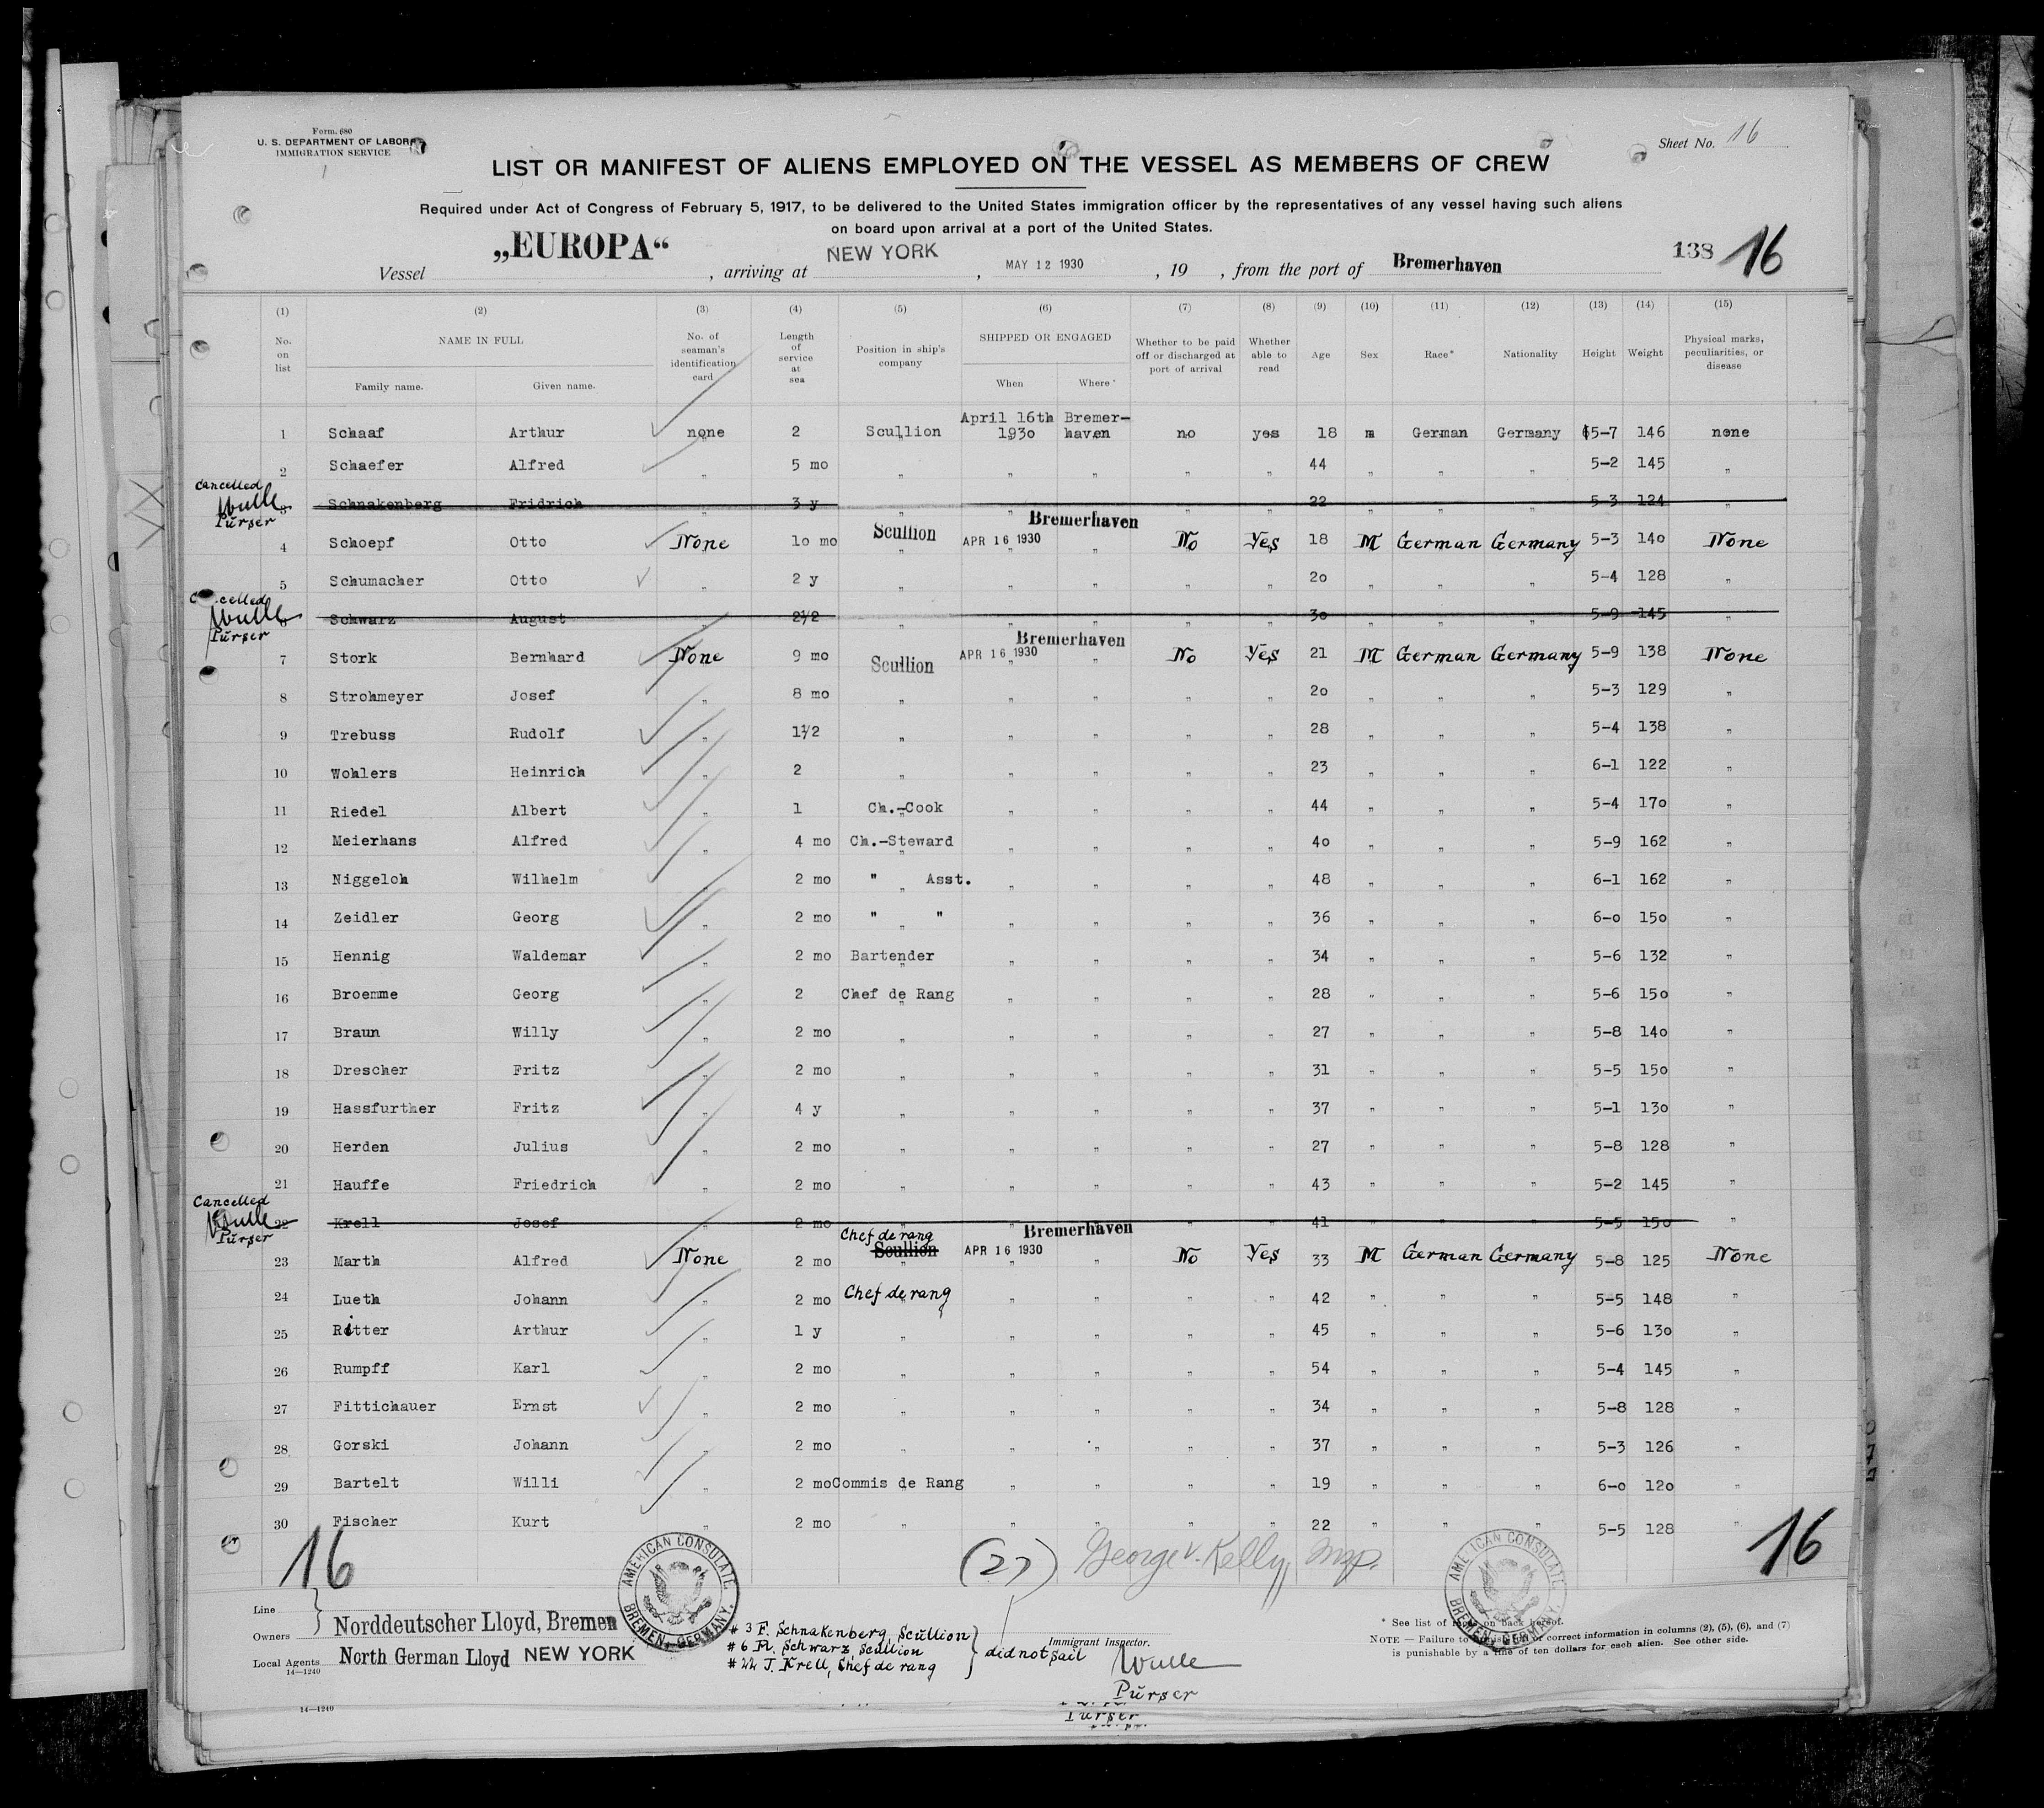 Form. 680
U. S. DEPARTMENT OF LABOR
IMMIGRATION SERVICE
Sheet No. 16
LIST OR MANIFEST OF ALIENS EMPLOYED ON THE VESSEL AS MEMBERS OF CREW
Required under Act of Congress of February 5, 1917, to be delivered to the United States immigration officer by the representatives of any vessel having such aliens
on board upon arrival at a port of the United States.
Vessel „EUROPA“, arriving at NEW YORK, MAY 12 1930, 19 , from the port of Bremerhaven 138 16
(1) (2) (3) (4) (5) (6) (7) (8) (9) (10) (11) (12) (13) (14) (15)
No. on list NAME IN FULL Family name. Given name. No. of seaman's identification card Length of service at sea Position in ship's company SHIPPED OR ENGAGED When Where Whether to be paid off or discharged at port of arrival Whether able to read Age Sex Race* Nationality Height Weight Physical marks, peculiarities, or disease
April 16th Bremer-
1 Schaaf Arthur none 2 Scullion 1930 haven no yes 18 m German Germany 5-7 146 none
2 Schaefer Alfred „ 5 mo „ „ „ „ „ 44 „ „ „ 5-2 145 „
Cancelled
Wulle
Purser
3 Schnakenberg Fridrich „ 3 y „ „ „ „ „ 22 „ „ „ 5-3 124 „
Bremerhaven
4 Schoepf Otto None 10 mo Scullion „ APR 16 1930 „ „ No Yes 18 M German Germany 5-3 140 None
5 Schumacher Otto „ 2 y „ „ „ „ „ 20 „ „ „ 5-4 128 „
Cancelled
Wulle
Purser
6 Schwarz August „ 2½ „ „ „ „ „ 30 „ „ „ 5-9 145 „
Bremerhaven
7 Stork Bernhard None 9 mo Scullion APR 16 1930 „ „ No Yes 21 M German Germany 5-9 138 None
8 Strohmeyer Josef „ 8 mo „ „ „ „ „ 20 „ „ „ 5-3 129 „
9 Trebuss Rudolf „ 1½ „ „ „ „ „ 28 „ „ „ 5-4 138 „
10 Wohlers Heinrich „ 2 „ „ „ „ „ 23 „ „ „ 6-1 122 „
11 Riedel Albert „ 1 Ch.-Cook „ „ „ „ 44 „ „ „ 5-4 170 „
12 Meierhans Alfred „ 4 mo Ch.-Steward „ „ „ „ 40 „ „ „ 5-9 162 „
13 Niggeloh Wilhelm „ 2 mo " „ Asst. „ „ „ „ 48 „ „ „ 6-1 162 „
14 Zeidler Georg „ 2 mo " „ " „ „ „ „ 36 „ „ „ 6-0 150 „
15 Hennig Waldemar „ 2 mo Bartender „ „ „ „ 34 „ „ „ 5-6 132 „
16 Broemme Georg „ 2 Chef de Rang „ „ „ „ 28 „ „ „ 5-6 150 „
17 Braun Willy „ 2 mo „ „ „ „ „ 27 „ „ „ 5-8 140 „
18 Drescher Fritz „ 2 mo „ „ „ „ „ 31 „ „ „ 5-5 150 „
19 Hassfurther Fritz „ 4 y „ „ „ „ „ 37 „ „ „ 5-1 130 „
20 Herden Julius „ 2 mo „ „ „ „ „ 27 „ „ „ 5-8 128 „
21 Hauffe Friedrich „ 2 mo „ „ „ „ „ 43 „ „ „ 5-2 145 „
Cancelled
Wulle
Purser
22 Krell Josef „ 2 mo „ „ „ „ „ 41 „ „ „ 5-5 150 „
Chef de rang Bremerhaven
23 Marth Alfred None 2 mo Scullion „ APR 16 1930 „ No Yes 33 M German Germany 5-8 125 None
24 Lueth Johann „ 2 mo Chef de rang „ „ „ „ 42 „ „ „ 5-5 148 „
25 Ritter Arthur „ 1 y „ „ „ „ „ 45 „ „ „ 5-6 130 „
26 Rumpff Karl „ 2 mo „ „ „ „ „ 54 „ „ „ 5-4 145 „
27 Fittichauer Ernst „ 2 mo „ „ „ „ „ 34 „ „ „ 5-8 128 „
28 Gorski Johann „ 2 mo „ „ „ „ „ 37 „ „ „ 5-3 126 „
29 Bartelt Willi „ 2 mo Commis de Rang „ „ „ „ 19 „ „ „ 6-0 120 „
30 Fischer Kurt „ 2 mo „ „ „ „ „ 22 „ „ „ 5-5 128 „
16 (27) George V. Kelly, Insp. 16
AMERICAN CONSULATE. BREMEN, GERMANY.
AMERICAN CONSULATE. BREMEN, GERMANY.
Line
Owners Norddeutscher Lloyd, Bremen
Local Agents North German Lloyd NEW YORK
14—1240
# 3 F. Schnakenberg, Scullion
# 6 A. Schwarz, Scullion
# 22 J. Krell, Chef de rang
did not sail
Immigrant Inspector.
Wulle
Purser
* See list of races on back hereof.
NOTE — Failure to furnish full or correct information in columns (2), (5), (6), and (7)
is punishable by a fine of ten dollars for each alien. See other side.
14—1240
Purser